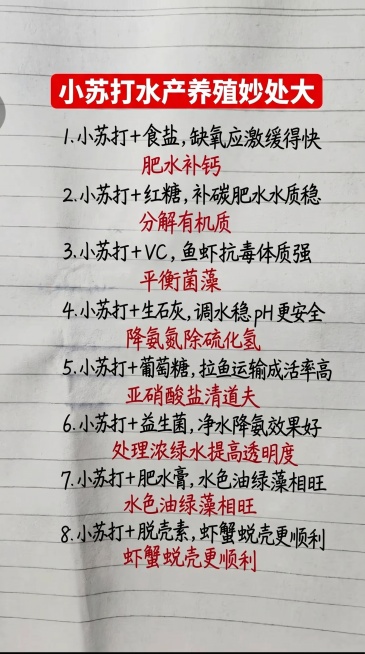 小苏打水产养殖妙处大
1.小苏打+食盐,缺氧应激缓得快
肥水补钙
2.小苏打+红糖,补碳肥水水质稳
分解有机质
3.小苏打+VC,鱼虾抗毒体质强
平衡菌藻
4.小苏打+生石灰,调水稳pH更安全
降氨氮除硫化氢
5.小苏打+葡萄糖,拉鱼运输成活率高
亚硝酸盐清道夫
6.小苏打+益生菌,净水降氨效果好
处理浓绿水提高透明度
7.小苏打+肥水膏,水色油绿藻相旺
水色油绿藻相旺
8.小苏打+脱壳素,虾蟹蜕壳更顺利
虾蟹蜕壳更顺利